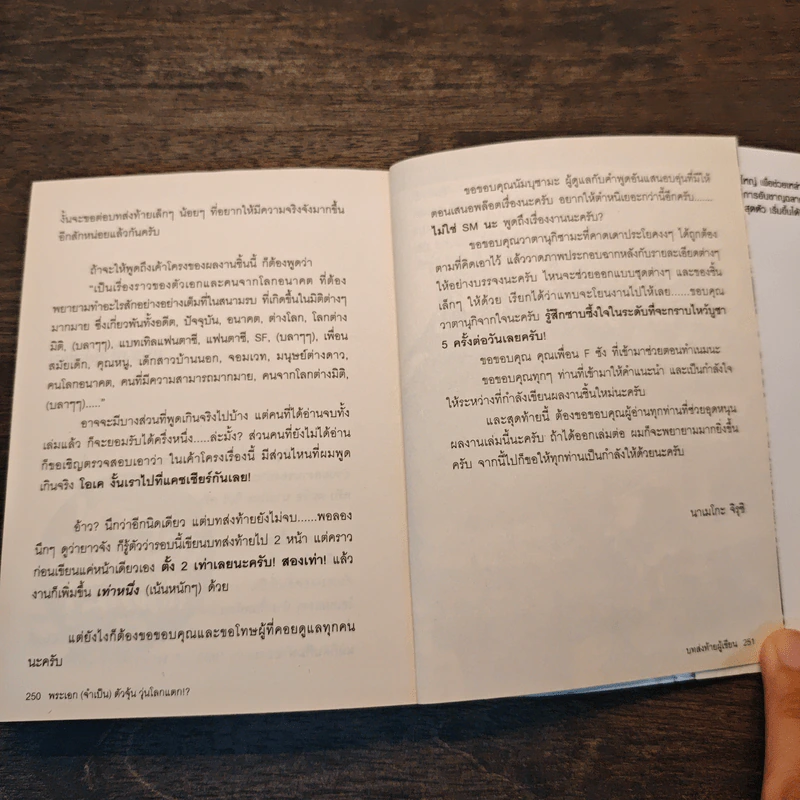 งั้นจะขอต่อบทส่งท้ายเล็กๆ น้อยๆ ที่อยากให้มีความจริงจังมากขึ้น
อีกสักหน่อยแล้วกันครับ
ถ้าจะให้พูดถึงเค้าโครงของผลงานชิ้นนี้ ก็ต้องพูดว่า
"เป็นเรื่องราวของตัวเอกและคนจากโลกอนาคต ที่ต้อง
พยายามทำอะไรสักอย่างอย่างเต็มที่ในสนามรบ ที่เกิดขึ้นในมิติต่างๆ
มากมาย ซึ่งเกี่ยวพันทั้งอดีต, ปัจจุบัน, อนาคต, ต่างโลก, โลกต่าง
มิติ, (บลาๆๆ), แบทเทิลแฟนตาซี, แฟนตาซี, SF, (บลาๆๆ), เพื่อน
สมัยเด็ก, คุณหนู, เด็กสาวบ้านนอก, จอมเวท, มนุษย์ต่างดาว,
คนโลกอนาคต, คนที่มีความสามารถมากมาย, คนจากโลกต่างมิติ,
(บลาๆๆ)....."
อาจจะมีบางส่วนที่พูดเกินจริงไปบ้าง แต่คนที่ได้อ่านจบทั้ง
เล่มแล้ว ก็จะยอมรับได้ครึ่งหนึ่ง.....ล่ะมั้ง? ส่วนคนที่ยังไม่ได้อ่าน
ก็ขอเชิญตรวจสอบเอาว่า ในเค้าโครงเรื่องนี้ มีส่วนไหนที่ผมพูด
เกินจริง โอเค งั้นเราไปที่แคชเชียร์กันเลย!
อ้าว? นึกว่าอีกนิดเดียว แต่บทส่งท้ายยังไม่จบ......พอลอง
นึกๆ ดูว่ายาวจัง ก็รู้ตัวว่ารอบนี้เขียนบทส่งท้ายไป 2 หน้า แต่คราว
ก่อนเขียนแค่หน้าเดียวเอง ตั้ง 2 เท่าเลยนะครับ! สองเท่า! แล้ว
งานก็เพิ่มขึ้น เท่าหนึ่ง (เน้นหนักๆ) ด้วย
แต่ยังไงก็ต้องขอขอบคุณและขอโทษผู้ที่คอยดูแลทุกคน
นะครับ
250 พระเอก (จำเป็น) ตัวจุ้น วุ่นโลกแตก!?
ขอขอบคุณนัมบุซามะ ผู้ดูแลกับคำพูดอันแสนอบอุ่นที่มีให้
ตอนเสนอพล็อตเรื่องนะครับ อยากให้ตำหนิเยอะกว่านี้อีกครับ......
ไม่ใช่ SM นะ พูดถึงเรื่องงานนะครับ?
ขอขอบคุณวาตานุกิซามะที่คาดเดาประโยคงงๆ ได้ถูกต้อง
ตามที่คิดเอาไว้ แล้ววาดภาพประกอบฉากหลังกับรายละเอียดต่างๆ
ให้อย่างบรรจงนะครับ ไหนจะช่วยออกแบบชุดต่างๆ และของชิ้น
เล็กๆ ให้ด้วย เรียกได้ว่าแทบจะโยนงานไปให้เลย......ขอบคุณ
วาตานุกิจากใจนะครับ รู้สึกซาบซึ้งใจในระดับที่จะกราบไหว้บูชา
5 ครั้งต่อวันเลยครับ!
ขอขอบคุณ คุณเพื่อน F ซัง ที่เข้ามาช่วยตอนทำเนมนะ
ขอขอบคุณทุกๆ ท่านที่เข้ามาให้คำแนะนำ และเป็นกำลังใจ
ให้ระหว่างที่กำลังเขียนผลงานชิ้นใหม่นะครับ
และสุดท้ายนี้ ต้องขอขอบคุณผู้อ่านทุกท่านที่ช่วยอุดหนุน
ผลงานเล่มนี้นะครับ ถ้าได้ออกเล่มต่อ ผมก็จะพยายามมากยิ่งขึ้น
ครับ จากนี้ไปก็ขอให้ทุกท่านเป็นกำลังให้ด้วยนะครับ
นาเมโกะ จิรุชิ
บทส่งท้ายผู้เขียน 251